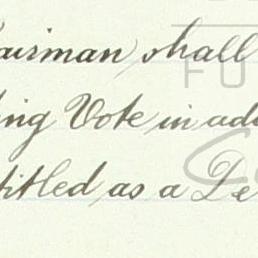 airman shall
ing Vote in add
titled as a De